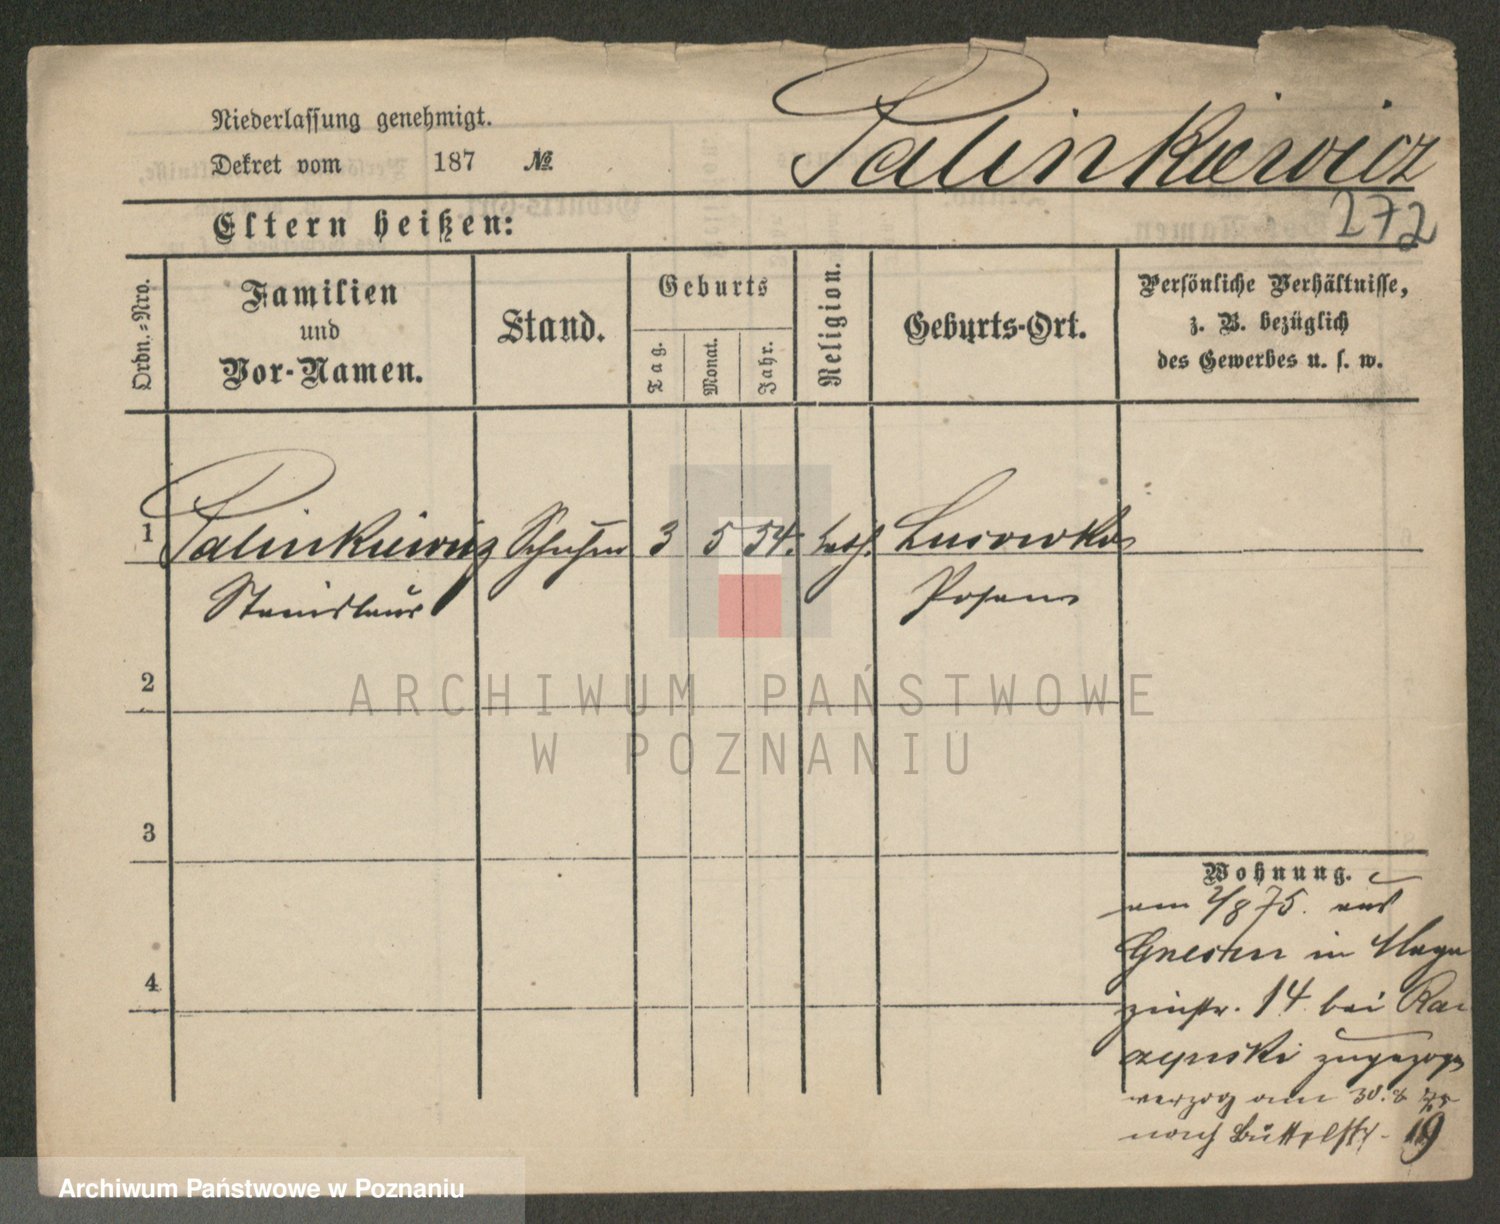 Niederlassung genehmigt.
Dekret vom 187 №
Palinkiewicz
272
Eltern heißen:
Ordn.-Nro.
Familien
und
Vor-Namen.
Stand.
Geburts
Tag.
Monat.
Jahr.
Religion.
Geburts-Ort.
Persönliche Verhältnisse,
z. B. bezüglich
des Gewerbes u. s. w.
1 Palinkiewicz 3 5 54. kath. Lussowko
Stanislaus Posen
2
3
4
Wohnung.
am 2/8 75. aus
Gnesen in Maga
zinstr. 14 bei Rac
zynski zugezogen
verzog am 30. 8 75
nach Büttelstr. 19
ARCHIWUM PAŃSTWOWE
W POZNANIU
Archiwum Państwowe w Poznaniu